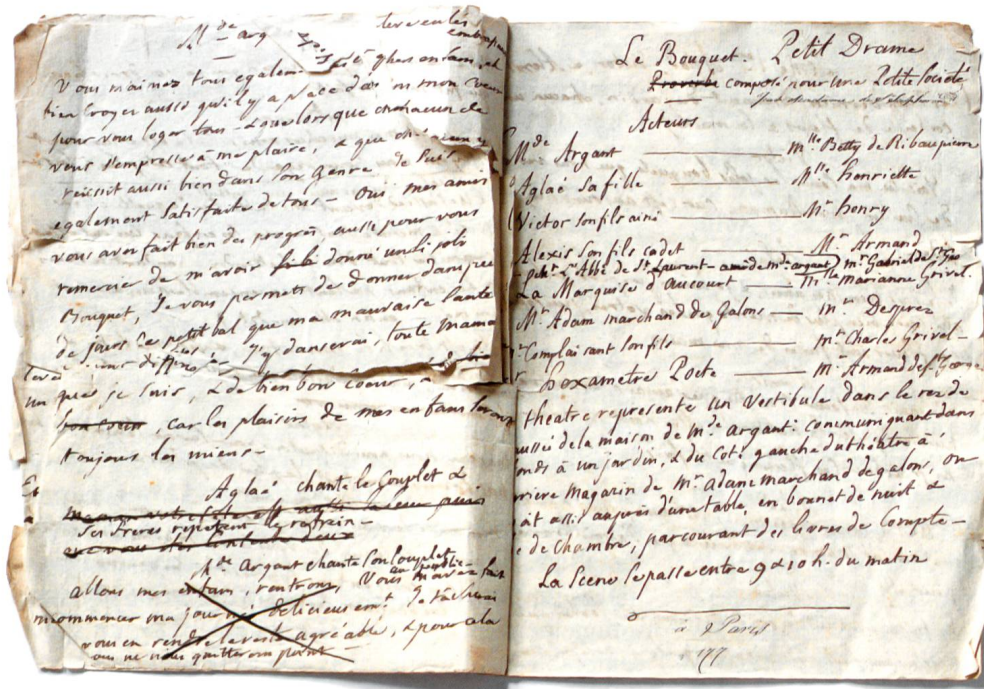 Mde arg
vous m'aimez tous egalement chers enfans, et
bien croyez aussi qu'il y a place dans mon coeur
pour vous loger tous - & que lors que chacun de
vous s'empresse à me plaire, & que
reussit aussi bien dans son Genre, je suis
egalement satisfaite de tous - Oui mes amis
vous avez fait bien des progrès, aussi pour vous
remercier de m'avoir donné un si joli
Bouquet, Je vous permets de donner dans peu
de jours ce petit bal que ma mauvaise santé
J'y danserai, toute mama
que je suis, & de bien bon Coeur, &
bon coeur, car les plaisirs de mes enfans seront
toujours les miens -
Aglaé chante le Couplet &
ses freres repetent le refrain -
Mde Argant chante son Couplet
au public
allons mes enfans, rentrons, Vous m'avez fait
commencer ma journée delicieusemt. Je tâcherai
vous en rendre le reste agréable, & pour cela
nous ne nous quitterons point -
Le Bouquet. Petit Drame
Proverbe composé pour une Petite Societé
Acteurs
Mde Argant — Mlle Betty de Ribaupierre
Aglaé sa fille — Mlle henriette
Victor son fils ainé — Mr henry
Alexis son fils cadet — Mr Armand
L'Abbé de St Laurent - ami de Mde argant) Mr Gabriel de St Geo
La Marquise d'aucourt — Mlle Marianne Grivel.
Mr Adam marchand de Galons — Mr Desprez
Complaisant son fils — Mr Charles Grivel -
hexametre Poete — Mr Armand de St George
theatre represente un Vestibule dans le rez de
aussée de la maison de Mde argant: communiquant dans
fonds à un jardin, & du coté gauche du théâtre à
rriere Magazin de Mr adam marchand de galons, on
oit assis auprès d'une table, en bonnet de nuit &
e de Chambre, parcourant des livres de Compte -
La Scene se passe entre 9 & 10 h. du matin
à Paris
177